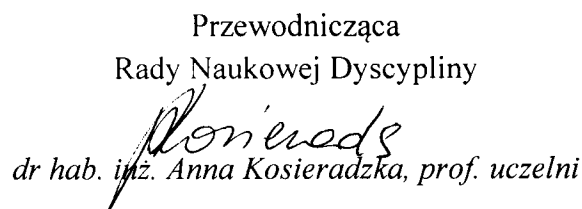 Przewodnicząca
Rady Naukowej Dyscypliny
Kosieradz
dr hab. inż. Anna Kosieradzka, prof. uczelni